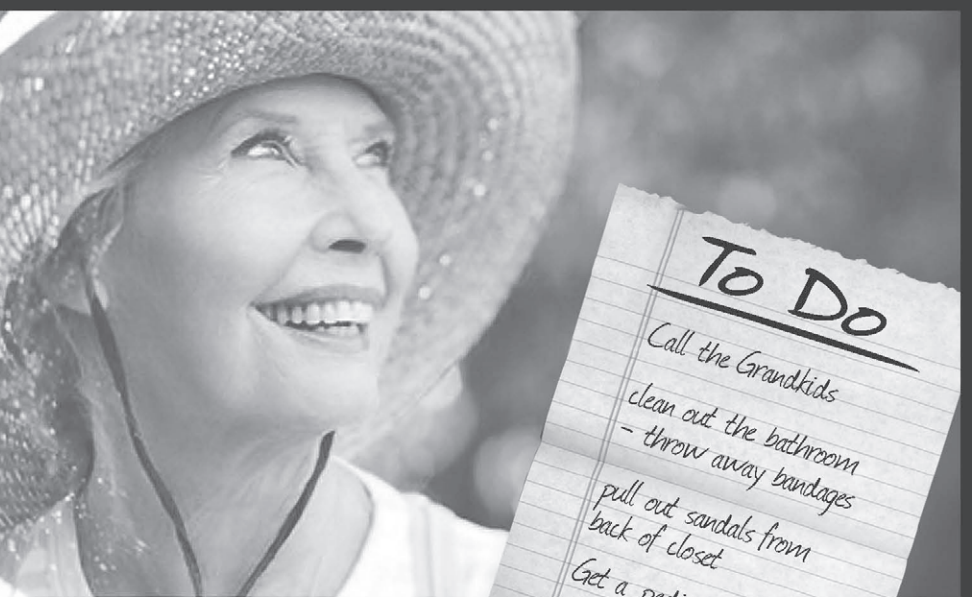 To Do
Call the Grandkids
clean out the bathroom
- throw away bandages
pull out sandals from
back of closet
Get a